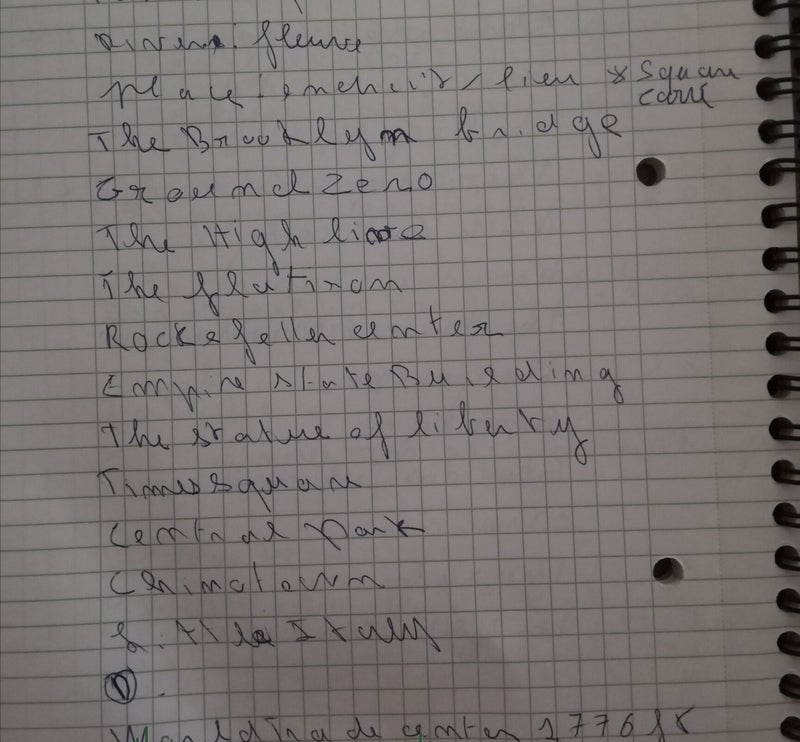 River: fleuve
place: endroit / lieu * Square
carré
The Brooklyn bridge
Ground Zero
The High line
The flatiron
Rockefeller center
Empire state Building
the statue of liberty
Times square
Central Park
Chinatown
Little Italy
World trade center 1776